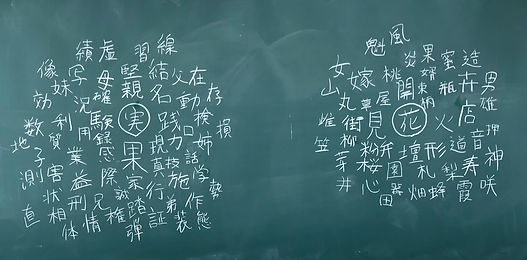 績 虚 習 線
像 妹 写 母 堅 結 父 在
効 況 確 親 名 動 存
数 利 用 験 実 践 力 損
地 子 貿 録 姉
測 業 感 果 現 技 話
害 益 際 家 真 施 学
状 刑 誠 踏 行 弟 作 勢
直 相 兄 情 弾 証 装 態
体
魁 風
女 嫁 桃 炎 果 蜜 造
山 丸 屋 開 婿 瓶 卉 男
街 草 束 店 雄
柳 見 花 火 押
笠 粉 音 神
芽 桜 壇 形 道 寿
井 心 園 札 梨 咲
器 田 畑 蜂 霞